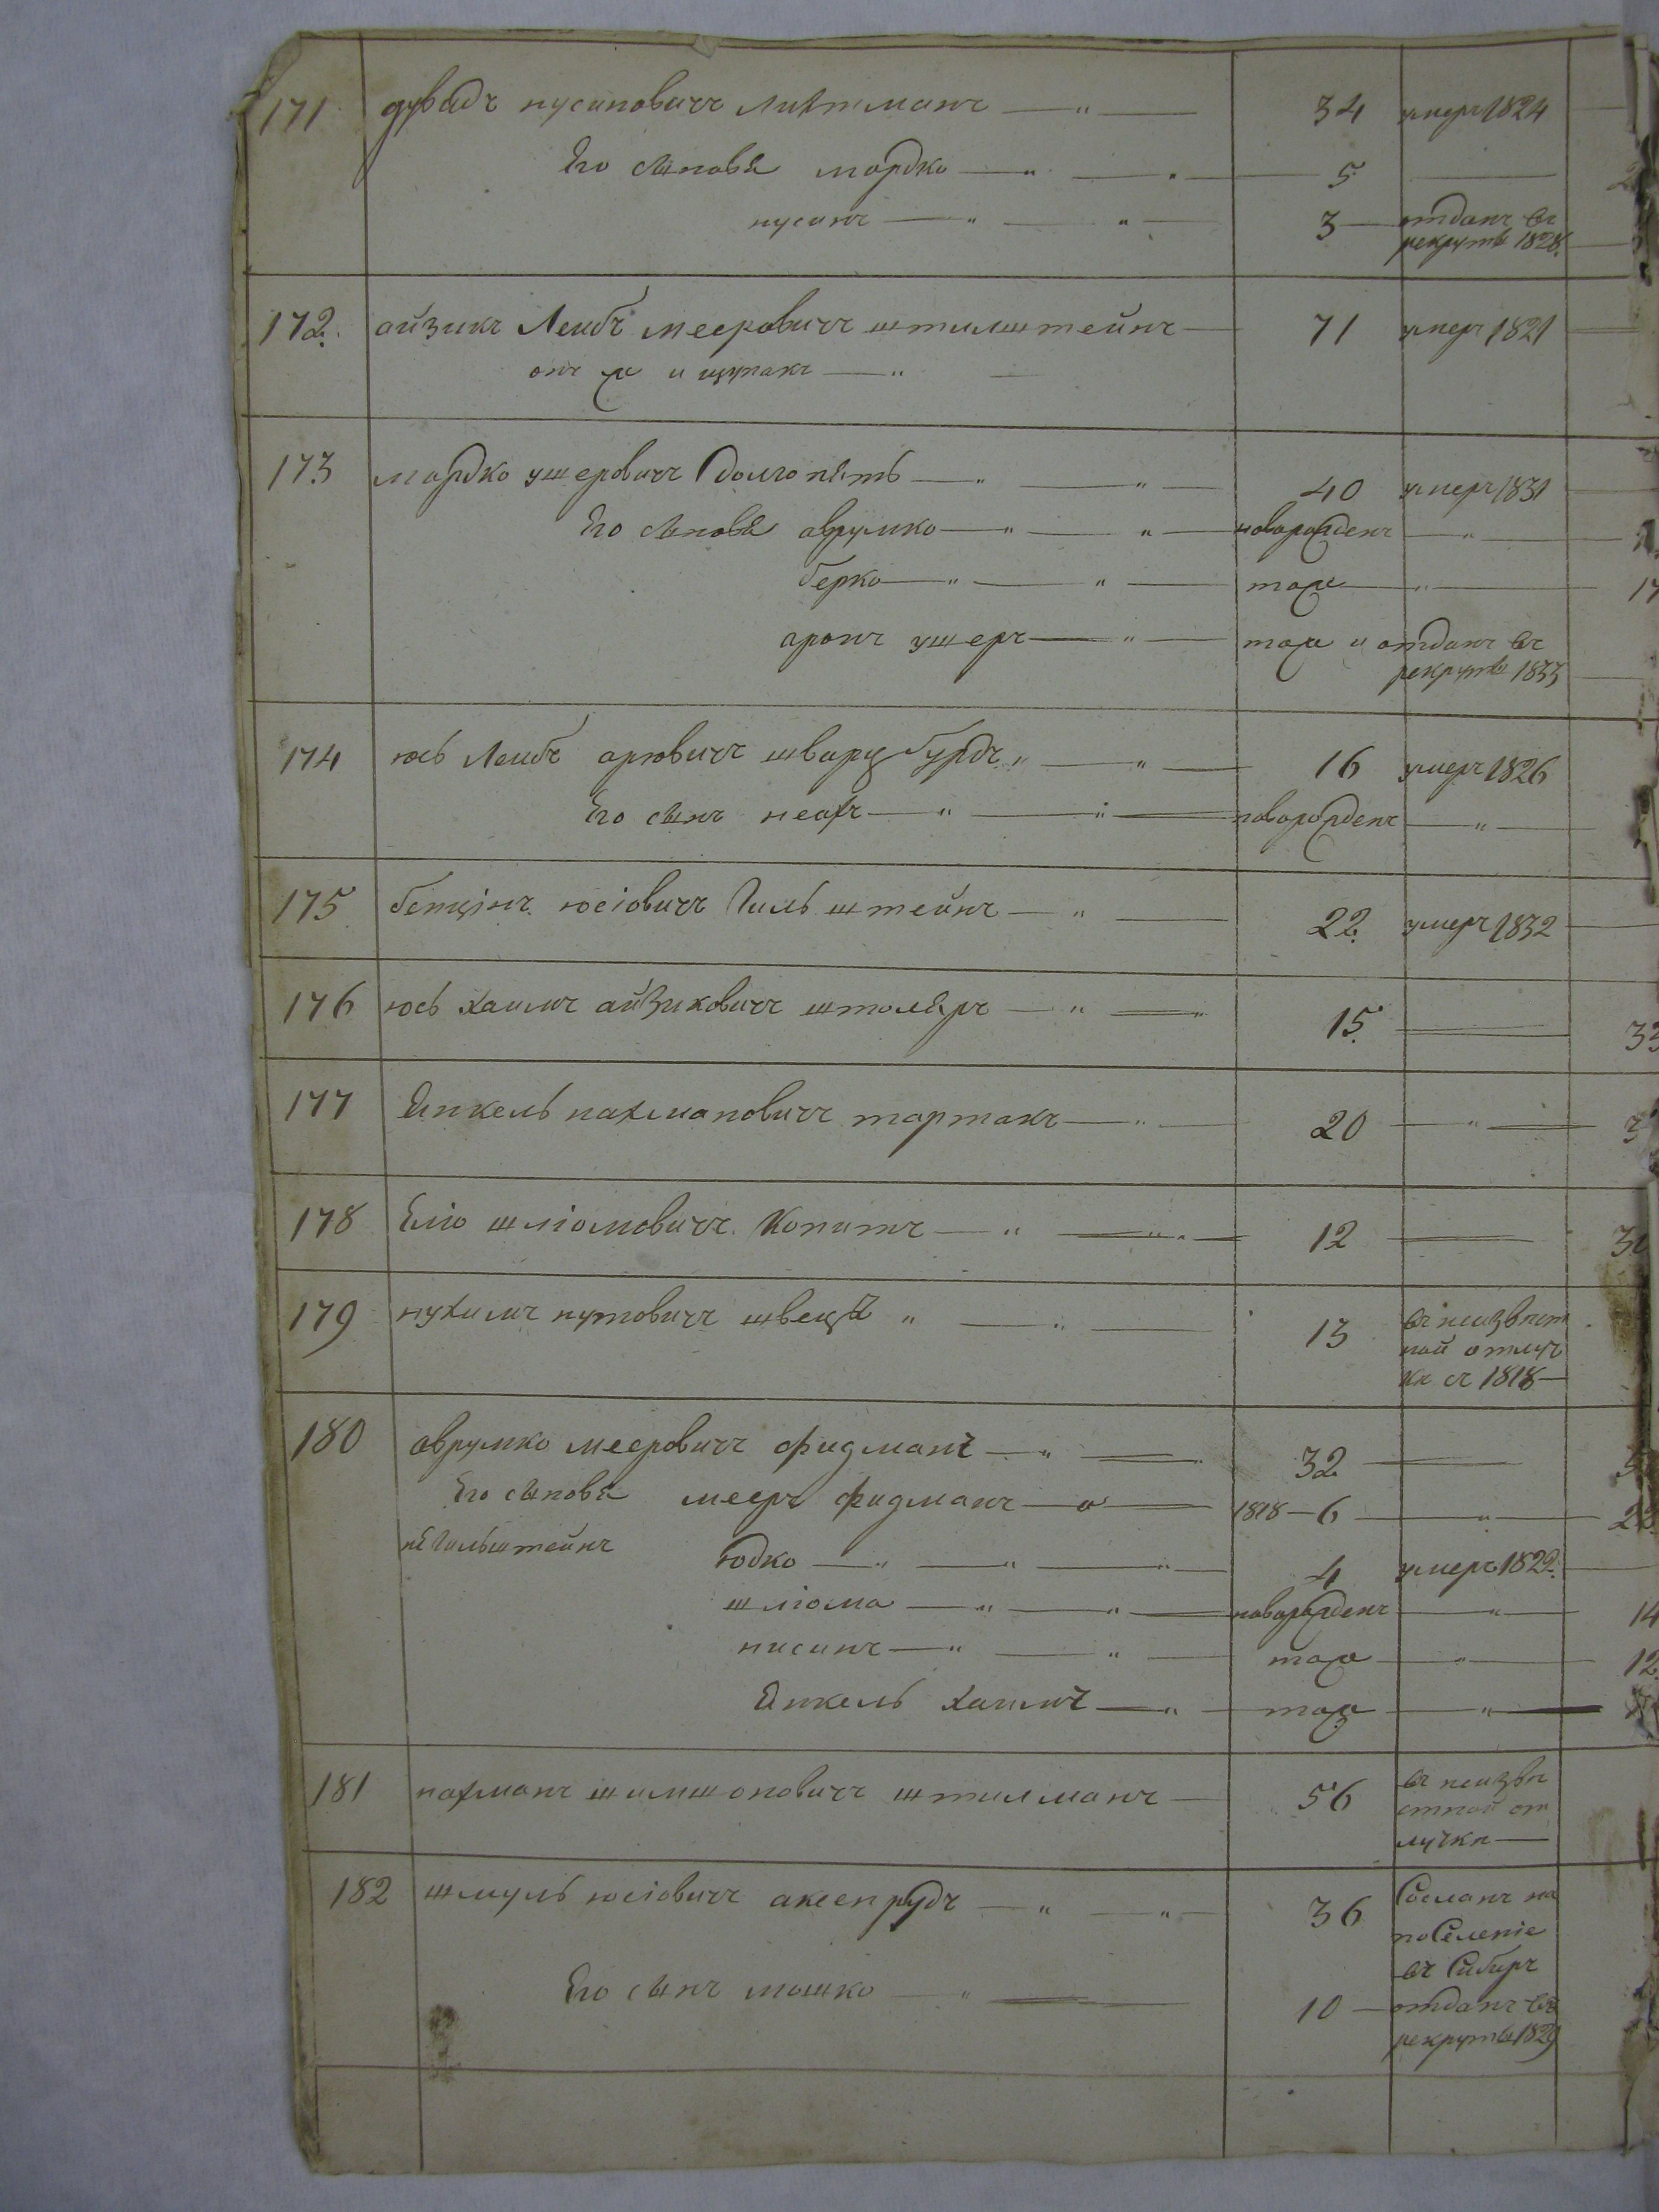 171 дувидъ нусиновичъ Лихтманъ — " — 34 умеръ 1824
Его сыновя мордко — " — " — 5 —
нусинъ — " — " — 3 — отданъ въ
рекруты 1828.
172. айзикъ Леибъ мееровичъ штилштейнъ — 71 умеръ 1821
онъ же и щупакъ — " —
173 мордко ушеровичъ Долгопятъ — " — " — 40 умеръ 1831
Его сыновя аврумко — " — " — новорожденъ — " —
берко — " — " — тоже — " — 17
аронъ ушеръ — " — тоже и отданъ въ
рекруты 1833
174 юсь Леибъ арювичъ шварцбурдъ " — " — 16 умеръ 1826
Его сынъ неахъ — " — " — новорожденъ — " —
175 бенціонъ юсіовичъ Гильштейнъ — " — 22. умеръ 1832
176 юсь хаимъ айзиковичъ штоляръ — " — " 15. — 33
177 Янкель нахмановичъ тартакъ — " — 20 — " — 3
178 Еліо шліомовичъ Копитъ — " — " — 12 — 30
179 нухимъ нутовичъ швецъ " — " — 13 въ неизвест
ной отлуч
ке съ 1818 —
180 аврумко мееровичъ фидманъ — " — 32 —
Его сыновя мееръ фидманъ — " — 1818 — 6 — " — 23
не Гильштейнъ юдко — " — " — " — 4 умеръ 1822.
шліома — " — " — новорожденъ — " — 14
нисинъ — " — " — тоже — " — 12
Янкель хаимъ — " — тоже — " —
181 нахманъ шимшоновичъ штилманъ — 56 въ неизве
стной от
лучке —
182 шмуль юсіовичъ аксенрудъ — " — " — 36 Сосланъ на
поселеніе
въ Сибирь
Его сынъ мошко — " — 10 — отданъ въ
рекруты 1829